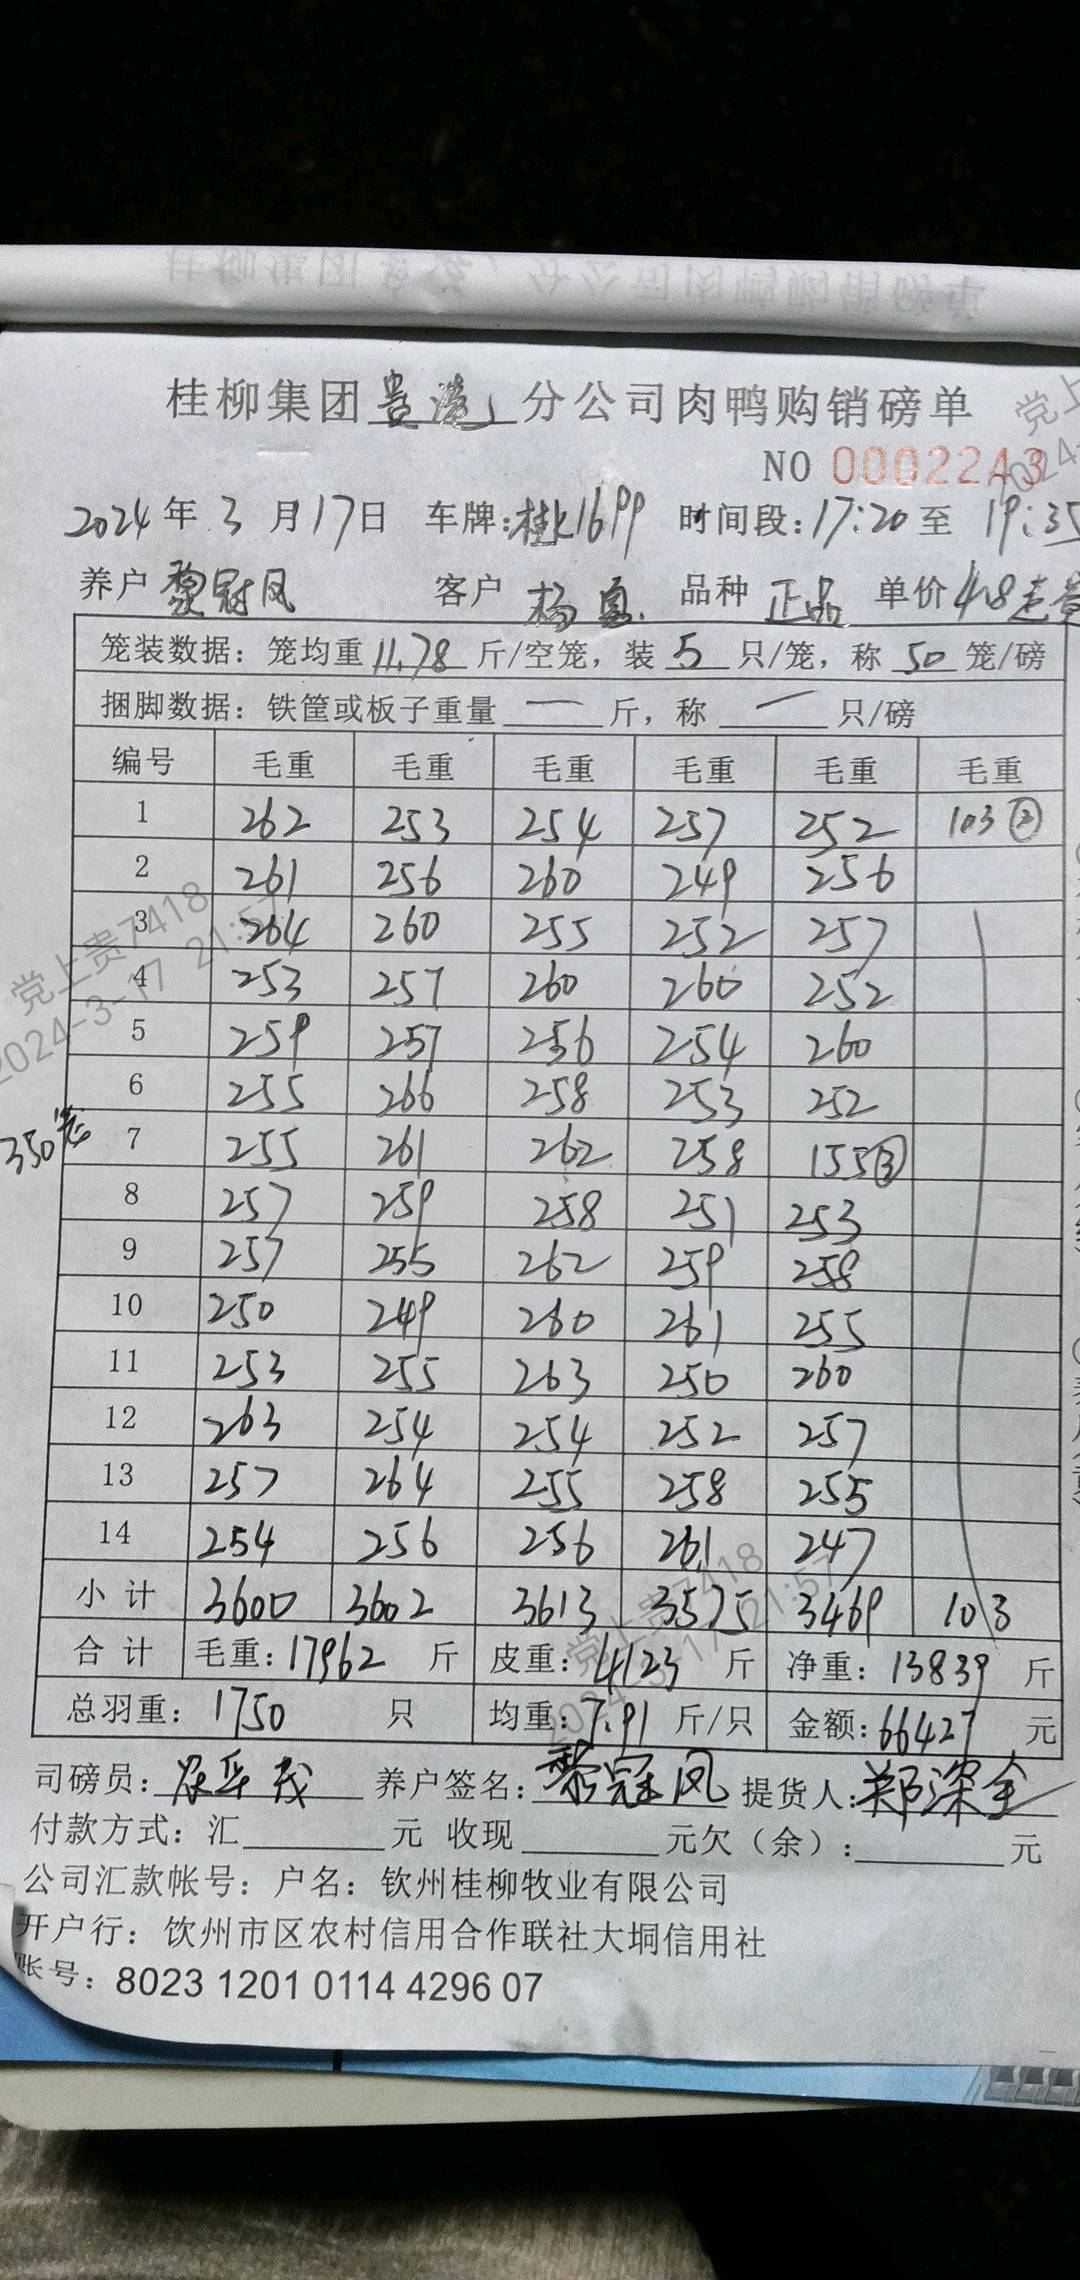 桂柳集团贵港分公司肉鸭购销磅单
NO 0002243
2024年3月17日 车牌:桂K1699 时间段:17:20至19:35
养户 黎冠凤 客户 杨 品种 正品 单价 4.8
笼装数据：笼均重 11.78 斤/空笼，装 5 只/笼，称 50 笼/磅
捆脚数据：铁筐或板子重量 — 斤，称 — 只/磅
编号 毛重 毛重 毛重 毛重 毛重 毛重
1 262 253 254 257 252 103②
2 261 256 260 249 256
3 264 260 255 252 257
4 253 257 260 260 252
5 259 257 256 254 260
6 255 266 258 253 252
350笼 7 255 261 262 258 155③
8 257 259 258 251 253
9 257 255 262 259 258
10 250 249 260 261 255
11 253 255 263 250 260
12 263 254 254 252 257
13 257 264 255 258 255
14 254 256 256 261 247
小计 3600 3602 3613 3575 3469 103
合计 毛重：17962 斤 皮重：4123 斤 净重：13839 斤
总羽重：1750 只 均重：7.91 斤/只 金额：66427 元
司磅员： 养户签名：黎冠凤 提货人：郑深全
付款方式：汇 元 收现 元欠（余）： 元
公司汇款帐号：户名：钦州桂柳牧业有限公司
开户行：饮州市区农村信用合作联社大垌信用社
账号：8023 1201 0114 4296 07
党上贵7418
2024-3-17 21:57
党上贵7418
2024-3-17 21:57
党上
2024-